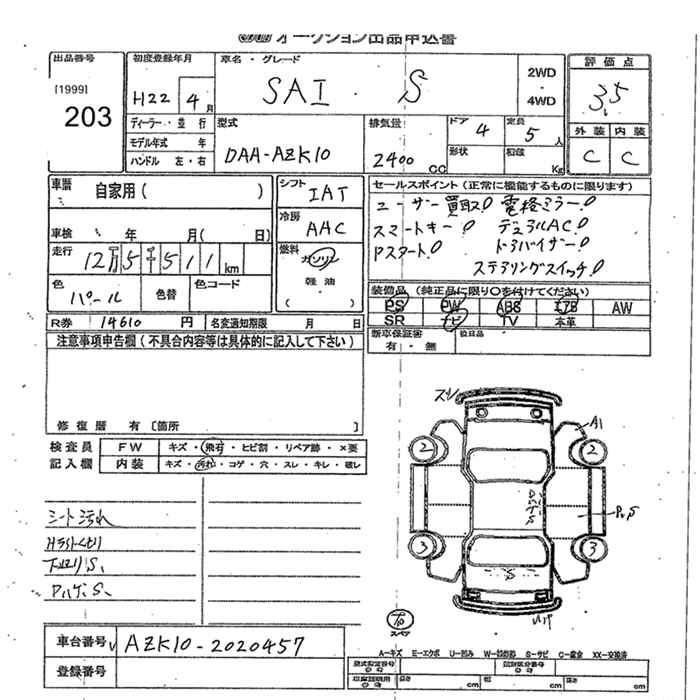 オークション出品申込書
出品番号 初度登録年月 車名・グレード 評価点
[1999] 203
H22 4月 SAI S 2WD・4WD 3.5
ディーラー・並行 型式 排気量 ドア 4 定員 5人 外装 内装
モデル年式 年 DAA-AZK10 2400 CC 形状 積蔵 Kg C C
ハンドル 左・右
車歴 自家用( ) シフト IAT セールスポイント(正常に機能するものに限ります)
ユーザー買取! 電格ミラー!
冷房 AAC スマートキー! デュアルAC!
車検 年 月( 日)
走行 12万5千511km 燃料 ガソリン Pスタート! ドラバイザー!
軽油 ステアリングスイッチ!
( )
色 パール 色替 色コード 装備品(純正品に限り○を付けてください)
PS PW ABS エアB AW
R券 14610円 名変通知期限 月 日 SR ナビ TV 本革
注意事項申告欄(不具合内容等は具体的に記入して下さい) 新車保証書 後日品
有・無
修復歴 有〔箇所 〕
検査員 FW キズ・飛石・ヒビ割・リペア跡・×要
記入欄 内装 キズ・汚れ・コゲ・穴・スレ・キレ・破レ
スリ
A1
2 2
シート汚れ
P.S
3 3
S
スペア
車台番号 AZK10-2020457
A-キズ E-エクボ U-凹み W-補修跡 S-サビ C-腐食 XX-交換済
登録番号 型式指定番号 類別区分番号
長さ cm 幅 cm 高さ cm